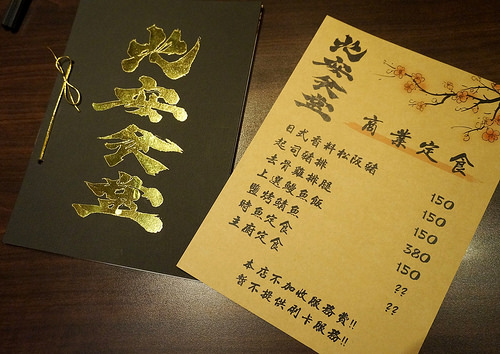 北安食堂
北安食堂
商業定食
日式香料松阪豬 150
起司豬排 150
去骨雞排腿 150
上選鰻魚飯 380
鹽烤鯖魚 150
鱈魚定食 ??
主廚定食 ??
本店不加收服務費!!
暫不提供刷卡服務!!